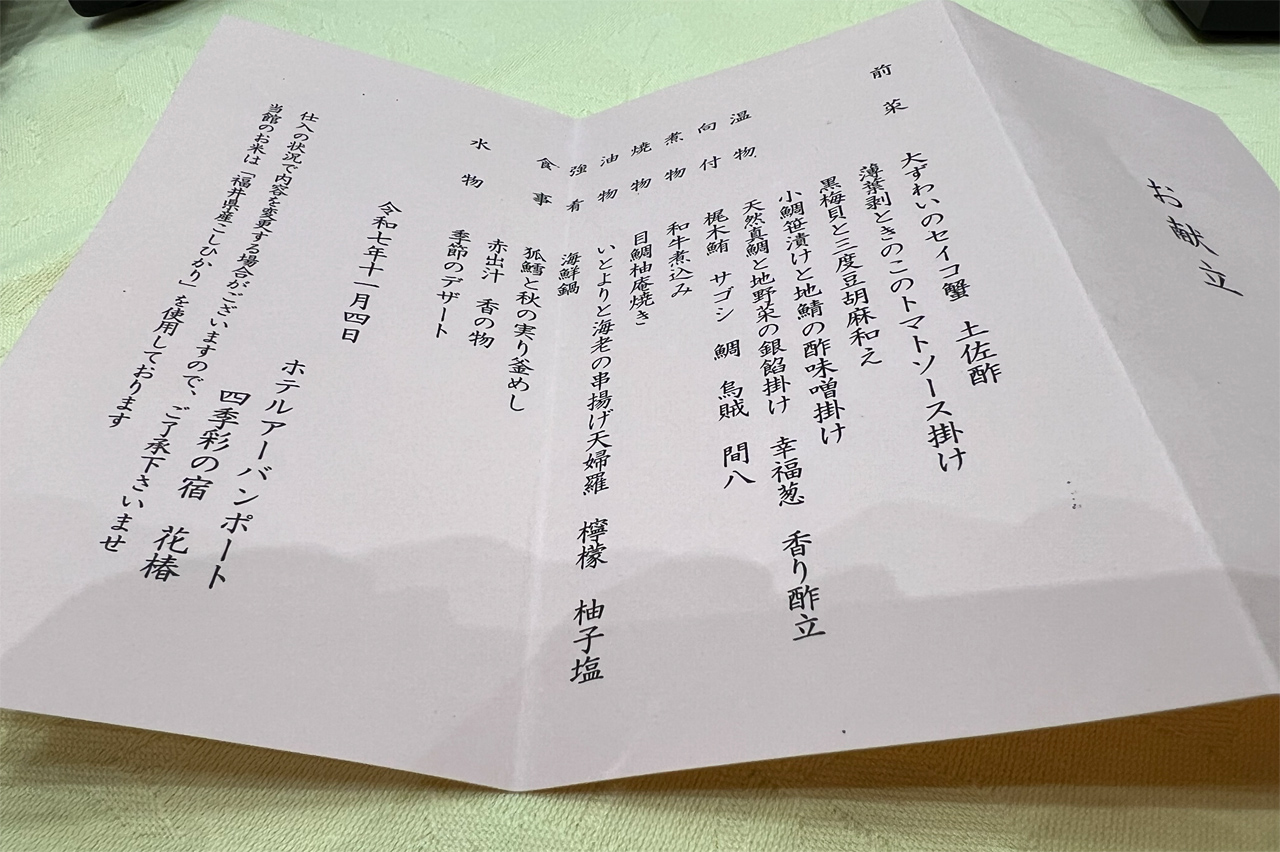 お献立
前菜
大ずわいのセイコ蟹　土佐酢
薄葉剥ときのこのトマトソース掛け
黒梅貝と三度豆胡麻和え
小鯛笹漬けと地鯖の酢味噌掛け
温物　天然真鯛と地野菜の銀餡掛け　幸福葱　香り酢立
向付　梶木鮪　サゴシ　鯛　烏賊　間八
煮物　和牛煮込み
焼物　目鯛柚庵焼き
油物　いとよりと海老の串揚げ天婦羅　檸檬　柚子塩
強肴　海鮮鍋
食事　狐鱈と秋の実り釜めし
赤出汁　香の物
水物　季節のデザート
令和七年十一月四日
ホテルアーバンポート
四季彩の宿　花椿
仕入の状況で内容を変更する場合がございますので、ご了承下さいませ
当館のお米は「福井県産こしひかり」を使用しております